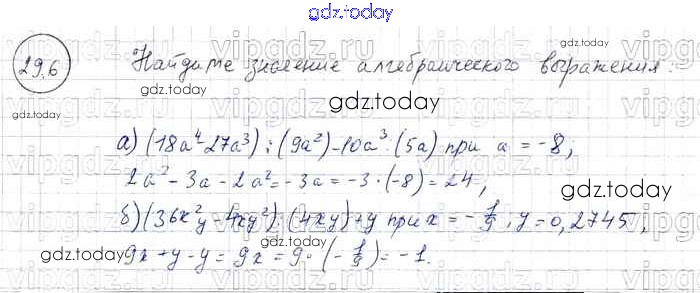 gdz.today
29.6 Найдите значение алгебраического выражения:
gdz.today
gdz.today
а) (18a⁴-27a³) : (9a²) - 10a³ : (5a) при a = -8;
2a² - 3a - 2a² = -3a = -3 · (-8) = 24,
gdz.today
б) (36x²y - 4xy²) : (4xy) + y при x = -1/9; y = 0,2745,
gdz.today
gdz.today
9x + y - y = 9x = 9 · (-1/9) = -1.
gdz.today